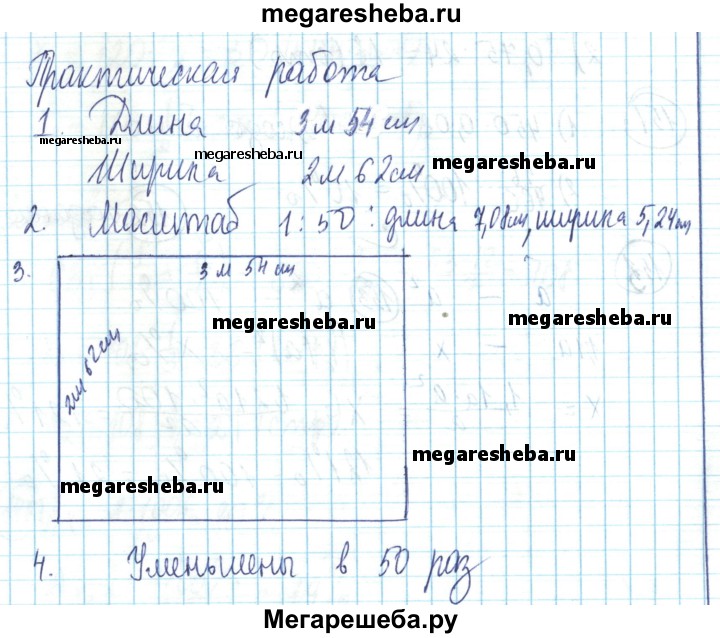 megaresheba.ru
Практическая работа
1. Длина 3 м 54 см
megaresheba.ru
megaresheba.ru
megaresheba.ru
Ширина 2 м 62 см
2. Масштаб 1:50: длина 7,08 см, ширина 5,24 см
3.
3 м 54 см
megaresheba.ru
megaresheba.ru
2 м 62 см
megaresheba.ru
megaresheba.ru
4. Уменьшены в 50 раз
Мегарешеба.ру